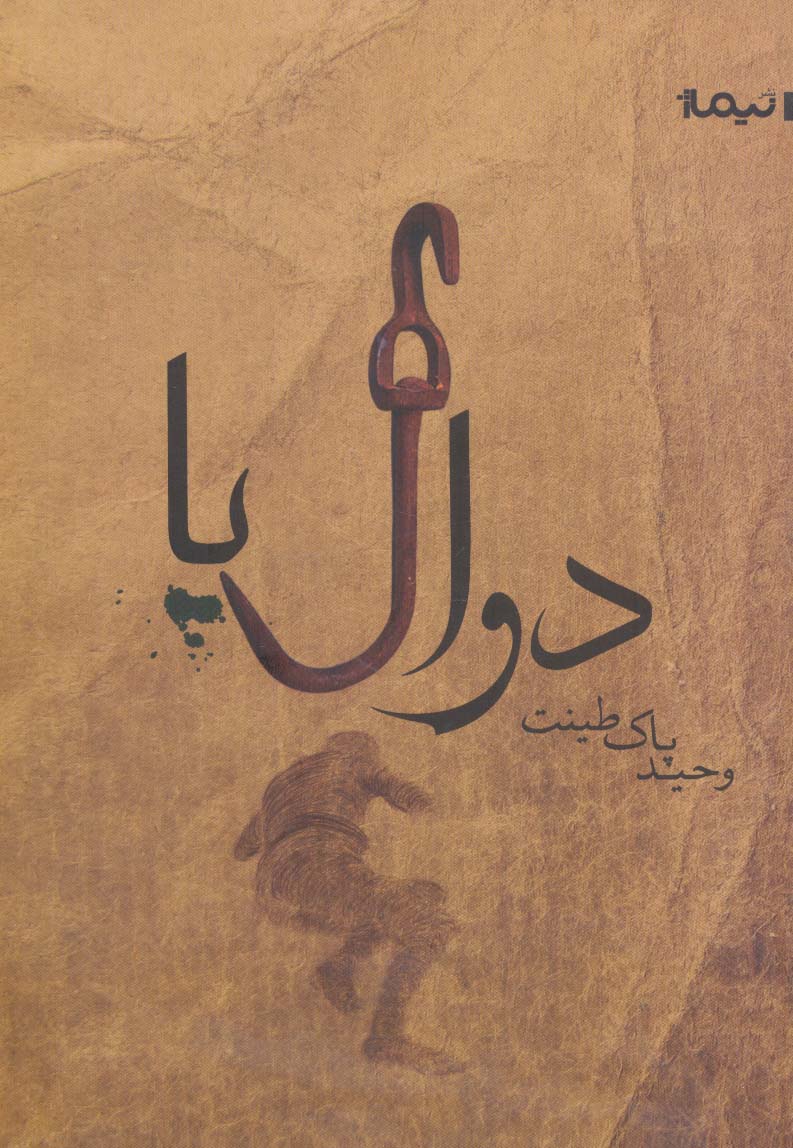 نشر نیماژ
دوال پا
وحید
پاک طینت